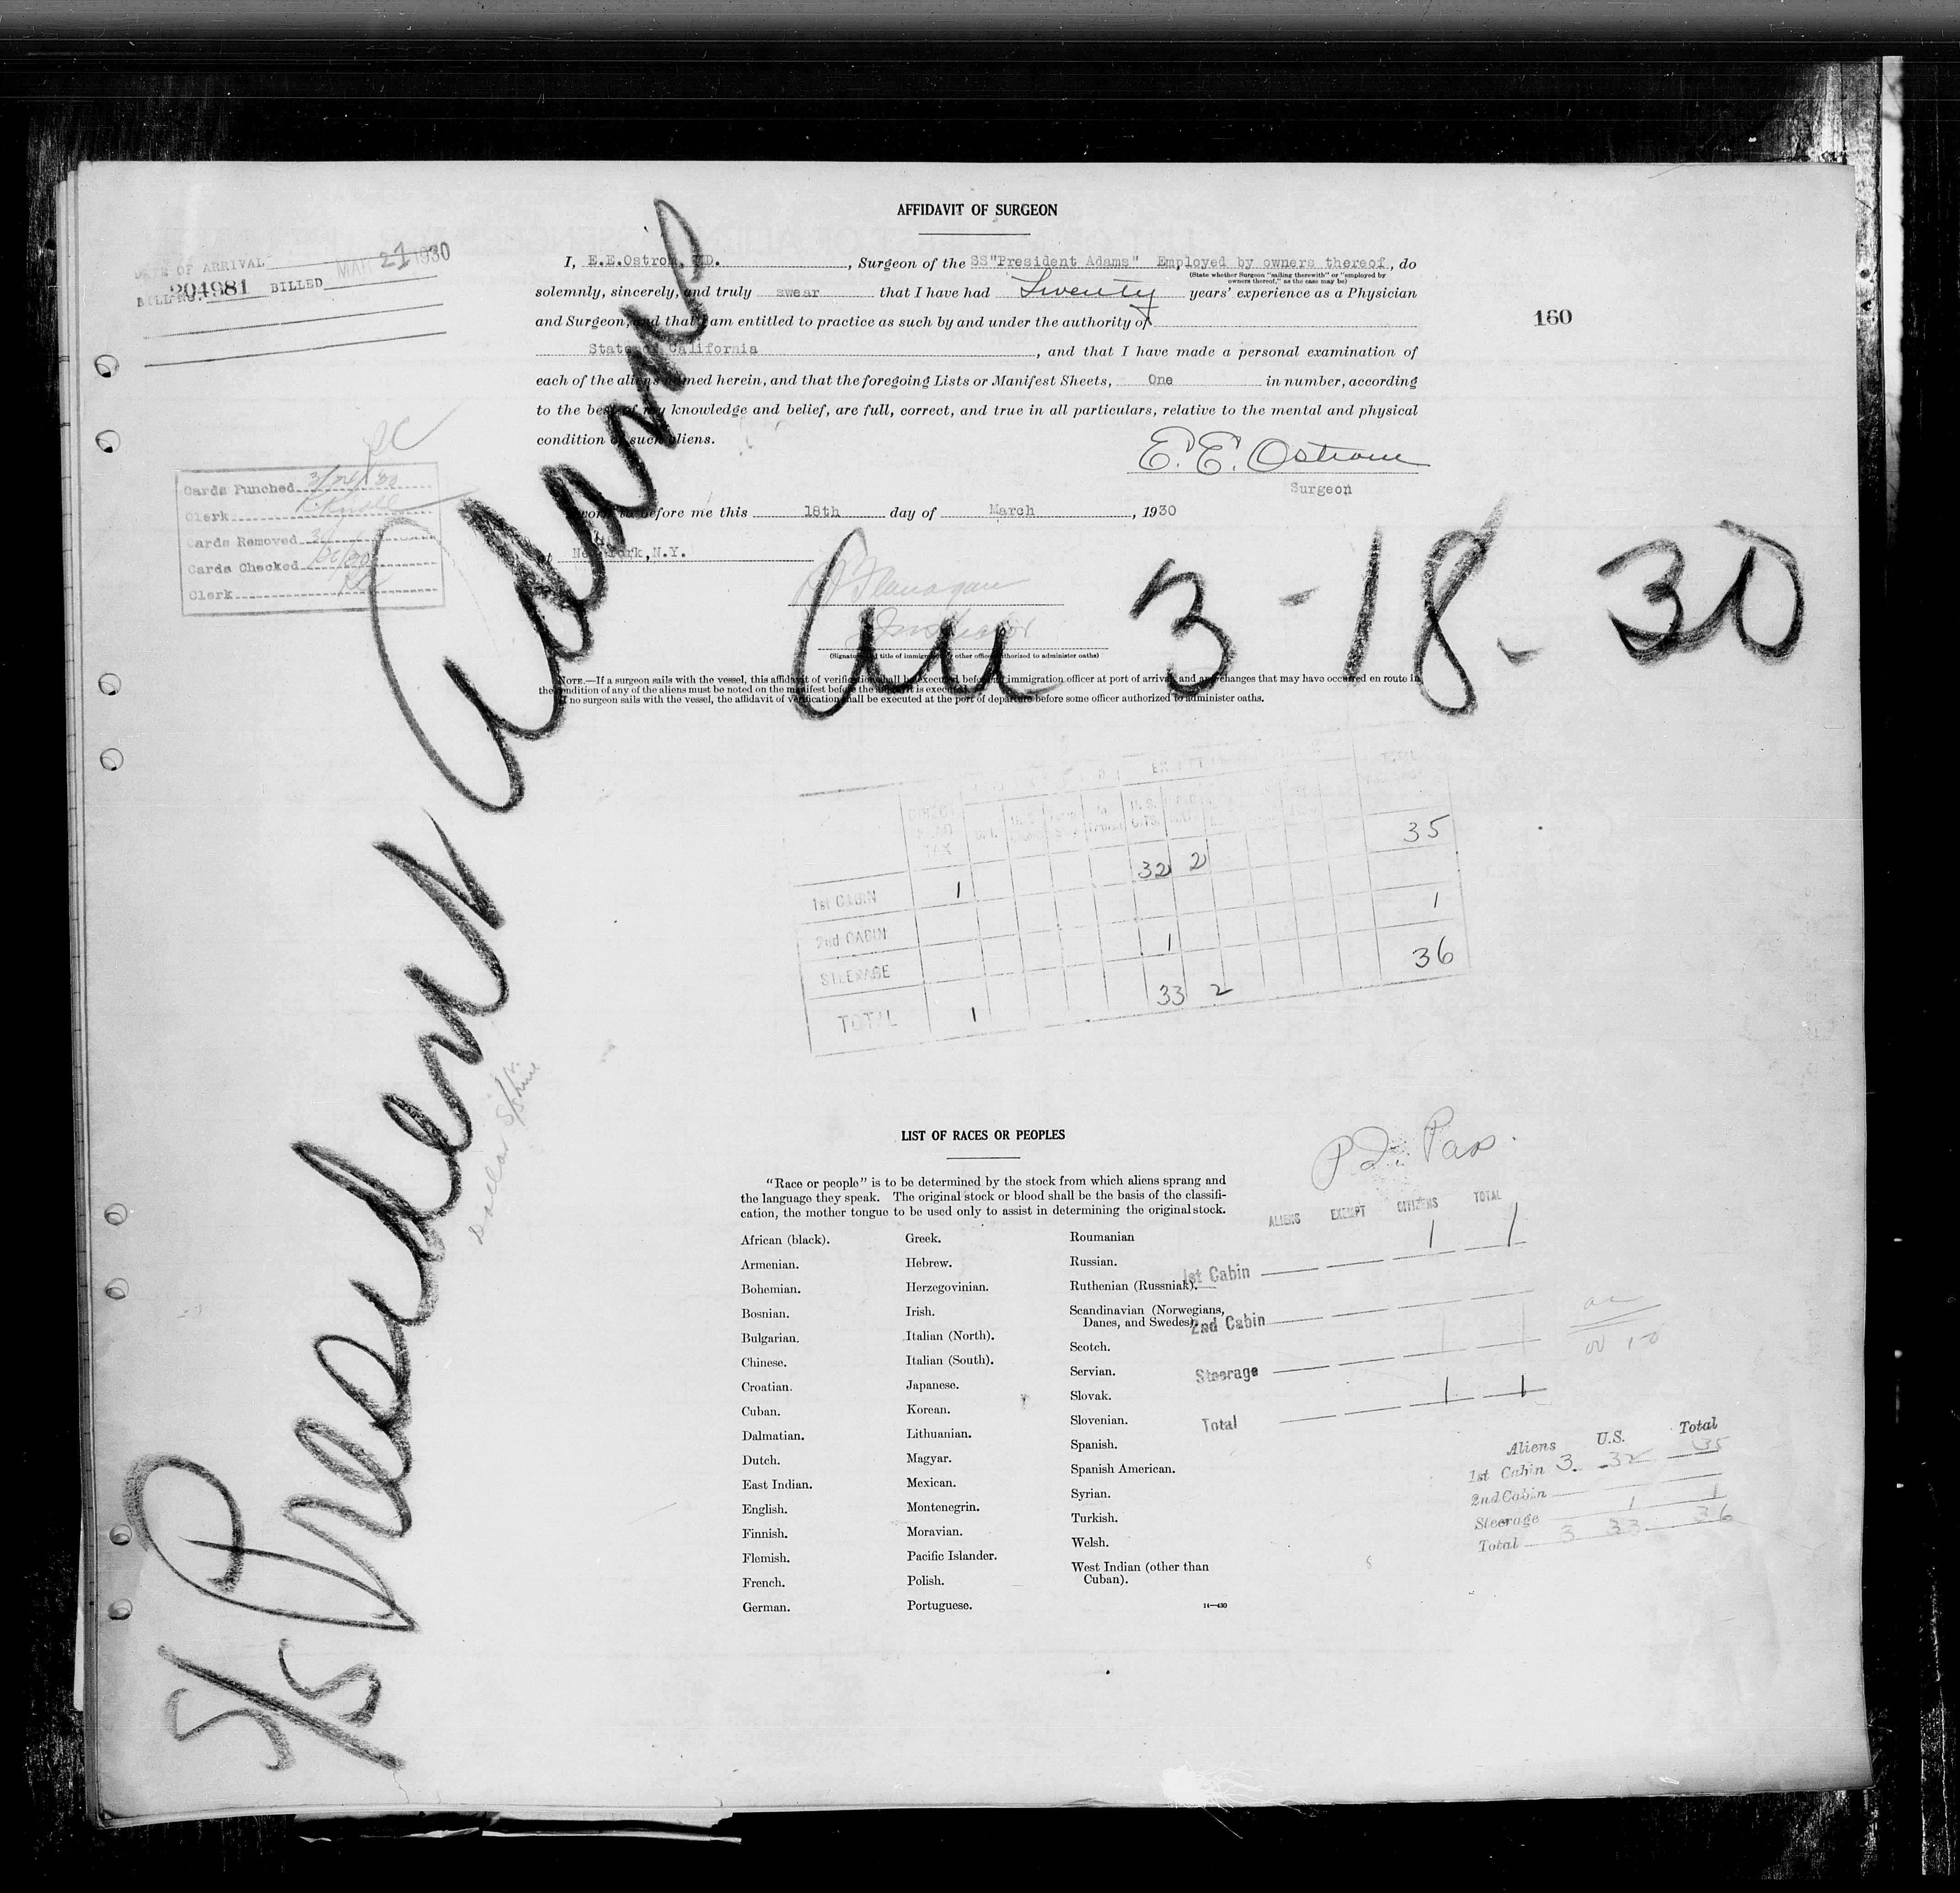 AFFIDAVIT OF SURGEON
DATE OF ARRIVAL MAR 21 1930
BILL NO. 204981 BILLED
I, E.E.Ostrom, MD. , Surgeon of the SS"President Adams" Employed by owners thereof, do
(State whether Surgeon "sailing therewith" or "employed by
owners thereof," as the case may be)
solemnly, sincerely, and truly swear that I have had Twenty years' experience as a Physician
and Surgeon, and that I am entitled to practice as such by and under the authority of
State of California , and that I have made a personal examination of
each of the aliens named herein, and that the foregoing Lists or Manifest Sheets, One in number, according
to the best of my knowledge and belief, are full, correct, and true in all particulars, relative to the mental and physical
condition of such aliens.
160
E. E. Ostrom
Surgeon
Sworn to before me this 18th day of March , 1930
at New York, N.Y.
Flanagan
(Signature and title of immigration or other officer authorized to administer oaths)
NOTE.—If a surgeon sails with the vessel, this affidavit of verification shall be executed before an immigration officer at port of arrival and any changes that may have occurred en route in
the condition of any of the aliens must be noted on the manifest before the affidavit is executed.
If no surgeon sails with the vessel, the affidavit of verification shall be executed at the port of departure before some officer authorized to administer oaths.
Cards Punched 3/24/30
Clerk
Cards Removed
Cards Checked
Clerk
S/S President Adams
Arr 3-18-30
Dollar S/S Line
DIRECT HEAD TAX
U.S. CITS.
TOTAL
1st CABIN 1 32 2 35
2nd CABIN
STEERAGE 1 1
TOTAL 1 33 2 36
LIST OF RACES OR PEOPLES
"Race or people" is to be determined by the stock from which aliens sprang and
the language they speak. The original stock or blood shall be the basis of the classifi-
cation, the mother tongue to be used only to assist in determining the original stock.
African (black).
Armenian.
Bohemian.
Bosnian.
Bulgarian.
Chinese.
Croatian.
Cuban.
Dalmatian.
Dutch.
East Indian.
English.
Finnish.
Flemish.
French.
German.
Greek.
Hebrew.
Herzegovinian.
Irish.
Italian (North).
Italian (South).
Japanese.
Korean.
Lithuanian.
Magyar.
Mexican.
Montenegrin.
Moravian.
Pacific Islander.
Polish.
Portuguese.
Roumanian
Russian.
Ruthenian (Russniak).
Scandinavian (Norwegians,
Danes, and Swedes).
Scotch.
Servian.
Slovak.
Slovenian.
Spanish.
Spanish American.
Syrian.
Turkish.
Welsh.
West Indian (other than
Cuban).
14—430
ALIENS EXEMPT CITIZENS TOTAL
1st Cabin 1 1
2nd Cabin
Steerage
Total 1 1
Aliens U.S. Total
1st Cabin 3 32 35
2nd Cabin
Steerage 1 1
Total 3 33 36